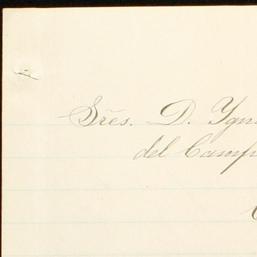 Sres. D. Ygn
del Camp